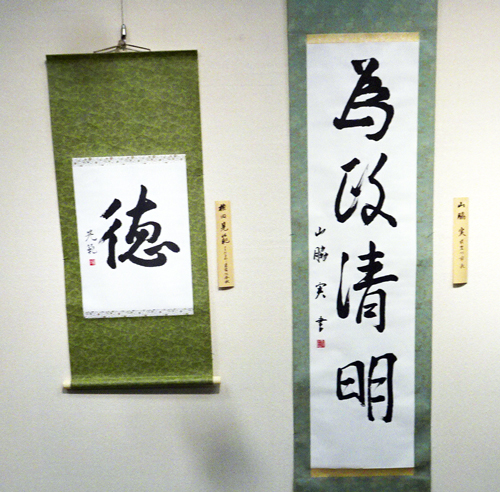 徳
光範
為政清明
山脇実書
山脇 実